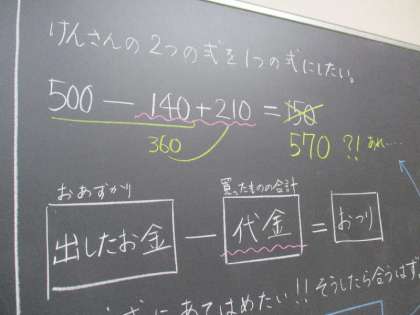 けんさんの2つの式を1つの式にしたい。
500 － 140+210 = 150
360
570 ?! あれ…
おあずかり 買ったものの合計
出したお金 － 代金 = おつり
式にあてはめたい!!そうしたら合うはず。